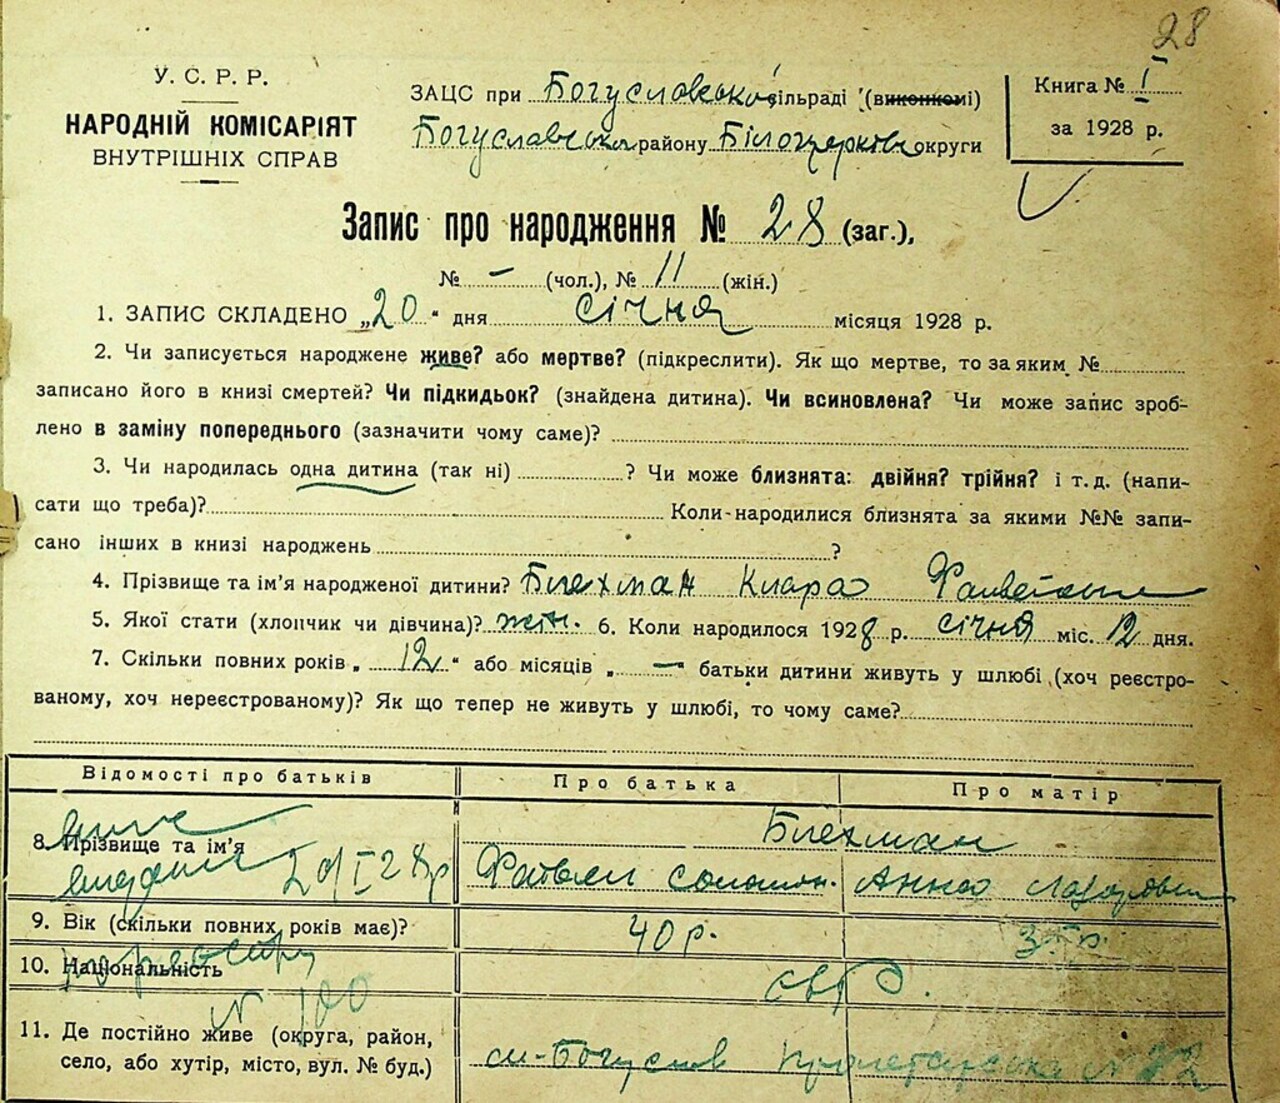 28
У. С. Р. Р.
НАРОДНІЙ КОМІСАРІЯТ
ВНУТРІШНІХ СПРАВ
ЗАЦС при Богуславській сільраді (виконкомі)
Богуславського району Білоцерків округи
Книга № I
за 1928 р.
Запис про народження № 28 (заг.),
№ – (чол.), № 11 (жін.)
1. ЗАПИС СКЛАДЕНО „20“ дня січня місяця 1928 р.
2. Чи записується народжене живе? або мертве? (підкреслити). Як що мертве, то за яким №
записано його в книзі смертей? Чи підкидьок? (знайдена дитина). Чи всиновлена? Чи може запис зроб-
лено в заміну попереднього (зазначити чому саме)?
3. Чи народилась одна дитина (так ні) ? Чи може близнята: двійня? трійня? і т. д. (напи-
сати що треба)? Коли народилися близнята за якими №№ запи-
сано інших в книзі народжень ?
4. Прізвище та ім'я народженої дитини? Блехман Клара
5. Якої стати (хлопчик чи дівчина)? жін. 6. Коли народилося 1928 р. січня міс. 12 дня.
7. Скільки повних років „12“ або місяців „–“ батьки дитини живуть у шлюбі (хоч реєстро-
ваному, хоч нереєстрованому)? Як що тепер не живуть у шлюбі, то чому саме?
Відомості про батьків Про батька Про матір
8. Прізвище та ім'я Блехман
20/I 28р Соломон. Анна Лазаровна
9. Вік (скільки повних років має)? 40 р.
10. Національність євр.
по реєстру
№ 100
11. Де постійно живе (округа, район,
село, або хутір, місто, вул. № буд.) м. Богуслав Пролетарська №